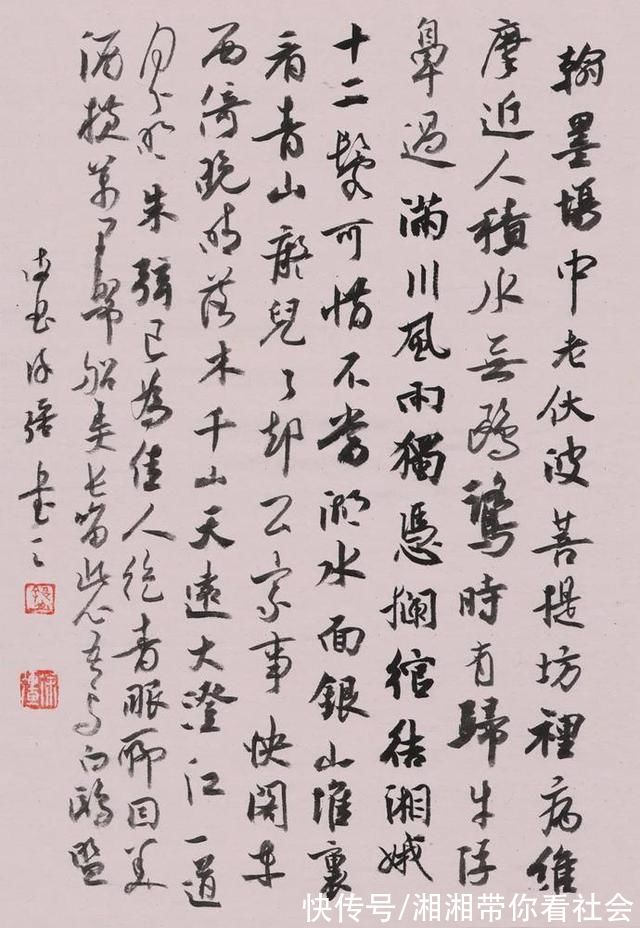 翰墨場中老伏波菩提坊裡病維
摩近人積水無鷗鷺時有歸牛浮
鼻過滿川風雨獨憑欄綰結湘娥
十二鬟可惜不當湖水面銀山堆裏
看青山癡兒了却公家事快閣東
西倚晚晴落木千山天遠大澄江一道
月分明朱弦已為佳人絕青眼聊因美
酒橫萬里歸船弄長笛此心吾与白鷗盟
強書之
快传号/湘湘带你看社会